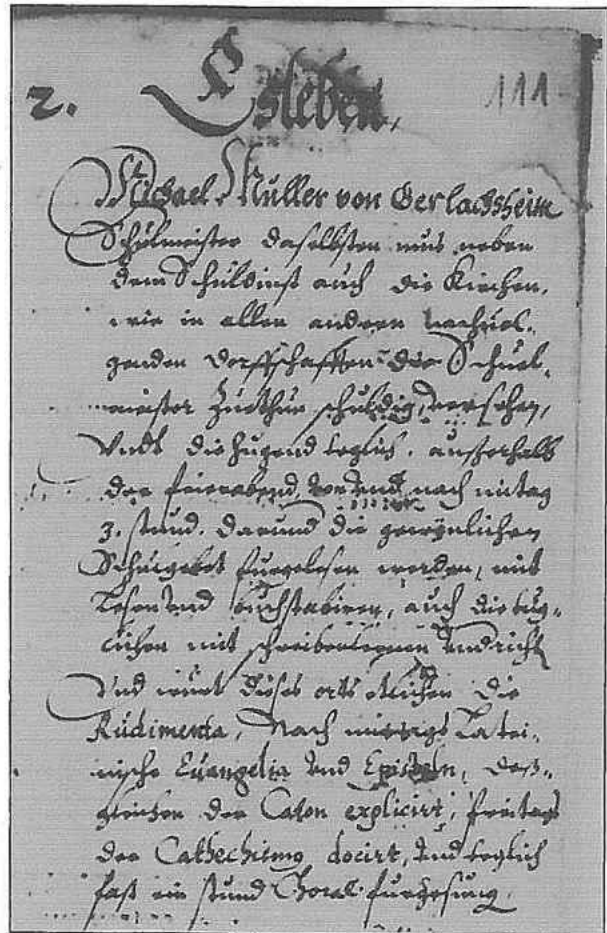 2. Esleben, 111
Michael Müller von Gerlachsheim
Schulmeister daselbsten mus neben
dem Schuldinst auch die Kirchen,
wie in allen andern nachuol-
genden dorffschafften der Schuel-
meister zuethun schuldig, versehen,
Undt die Jugend teglich, ausserhalb
der feierabend, vor und nach mitag
3. stund. darund die gewonlichen
Schuigebet furgelesen werden, mit
Lesen und buchstabiren, auch die tug-
lichen mit schreiben
Und wurt dieses orts etlichen die
Rudimenta, Nach mittags Latei-
nische Euangelia und Episteln, dess-
gleichen der Caton explicirt, freitags
der Cathechismus docirt, und teglich
fast ein stund Choral